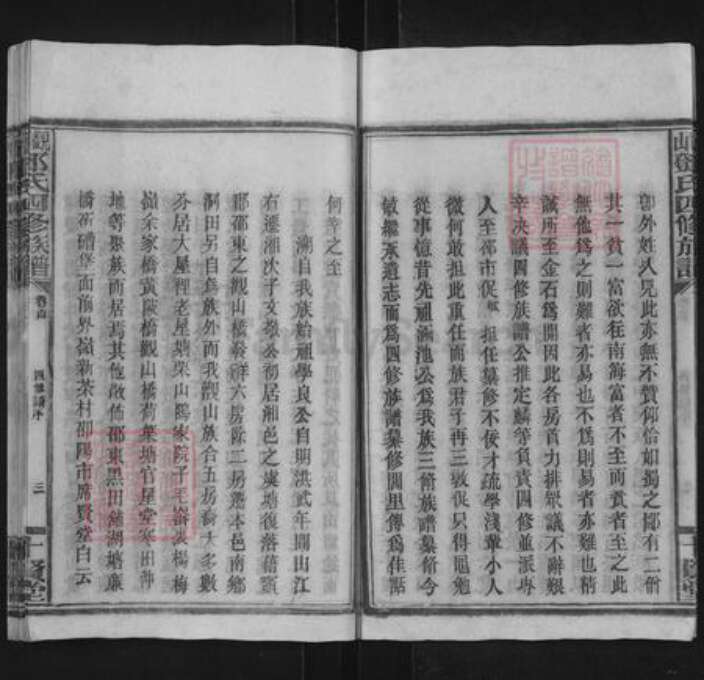 即外姓人見此亦無不贊仰恰如蜀之鄙有二僧
其一貧一富欲往南海富者不至而貧者至之此
無他為之則難者亦易也不為則易者亦難也精
誠所至金石為開因此各房首力排眾議不辭艱
辛決議四修族譜公推定麟等負責四修並派專
人至邵市促 担任纂修不佞才疏學淺輩小人
微何敢担此重任而族君子再三敦促只得黽勉
從事憶昔先祖涵池公為我族三脩族譜纂脩今
敏繼承遺志而為四修族譜纂修開里傳為佳話
何幸之至
溯自我族始祖學良公自明洪武年間由江
右遷湘次子文 公初居湘邑之虞塘復落藉寶
邵邵東之觀山橋發祥六房除二房遷本邑南鄉
洞田另自為族外而我觀山族合五房衡大多數
分居大屋裡老屋塘栗山陽家院子毛 裘楊梅
嶺朱家橋黃陂橋觀山橋荷葉塘官屋堂寒田沖
地等聚族而居焉其他散佈邵東黑田舖湖塘廉
橋砑磳堡面前界嶺新茶村邵陽市席賢堂白云
鄧氏四修族譜
卷首
四修譜序
三